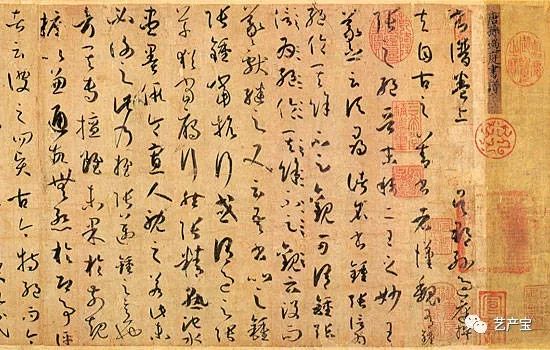 書譜卷上 吳郡孫過庭撰
夫自古之善書者漢魏有鍾
張之絕晉末稱二王之妙王
羲之云頃尋諸名書鍾張信為
絕倫其餘不足觀可謂鍾張
信為絕倫其餘不足觀云沒而
羲獻繼之又云吾書比之鍾
張鍾當抗行或謂過之張
草猶當雁行然張精熟池水
盡墨假令寡人耽之若此未
必謝之此乃推張邁鍾之意也
考其專擅雖未果於前規
摭以兼通故無慚於即事評
者云彼之四賢古今特絕而今
唐孫過庭書譜
艺产宝